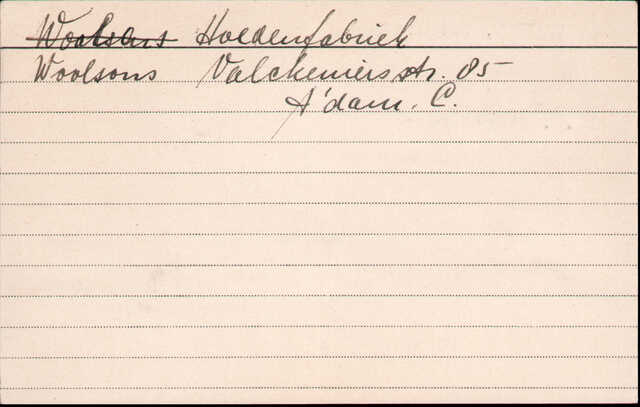 Woolsons Hoedenfabriek
Woolsons Valckenierstr. 85
A'dam. C.